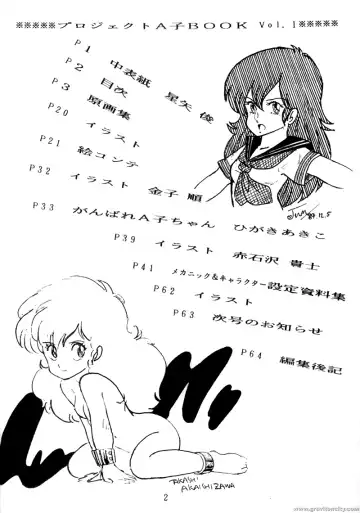 ※※※※※プロジェクトA子BOOK Vol.1※※※※※
P1 中表紙 星矢 俊
P2 目次
P3 原画集
P20 イラスト
P21 絵コンテ
P32 イラスト 金子 順
P33 がんばれA子ちゃん ひがきあきこ
P39 イラスト 赤石沢 貴士
P41 メカニック&キャラクター設定資料集
P62 イラスト
P63 次号のお知らせ
P64 編集後記
TAKASHI
AKAISHIZAWA
2